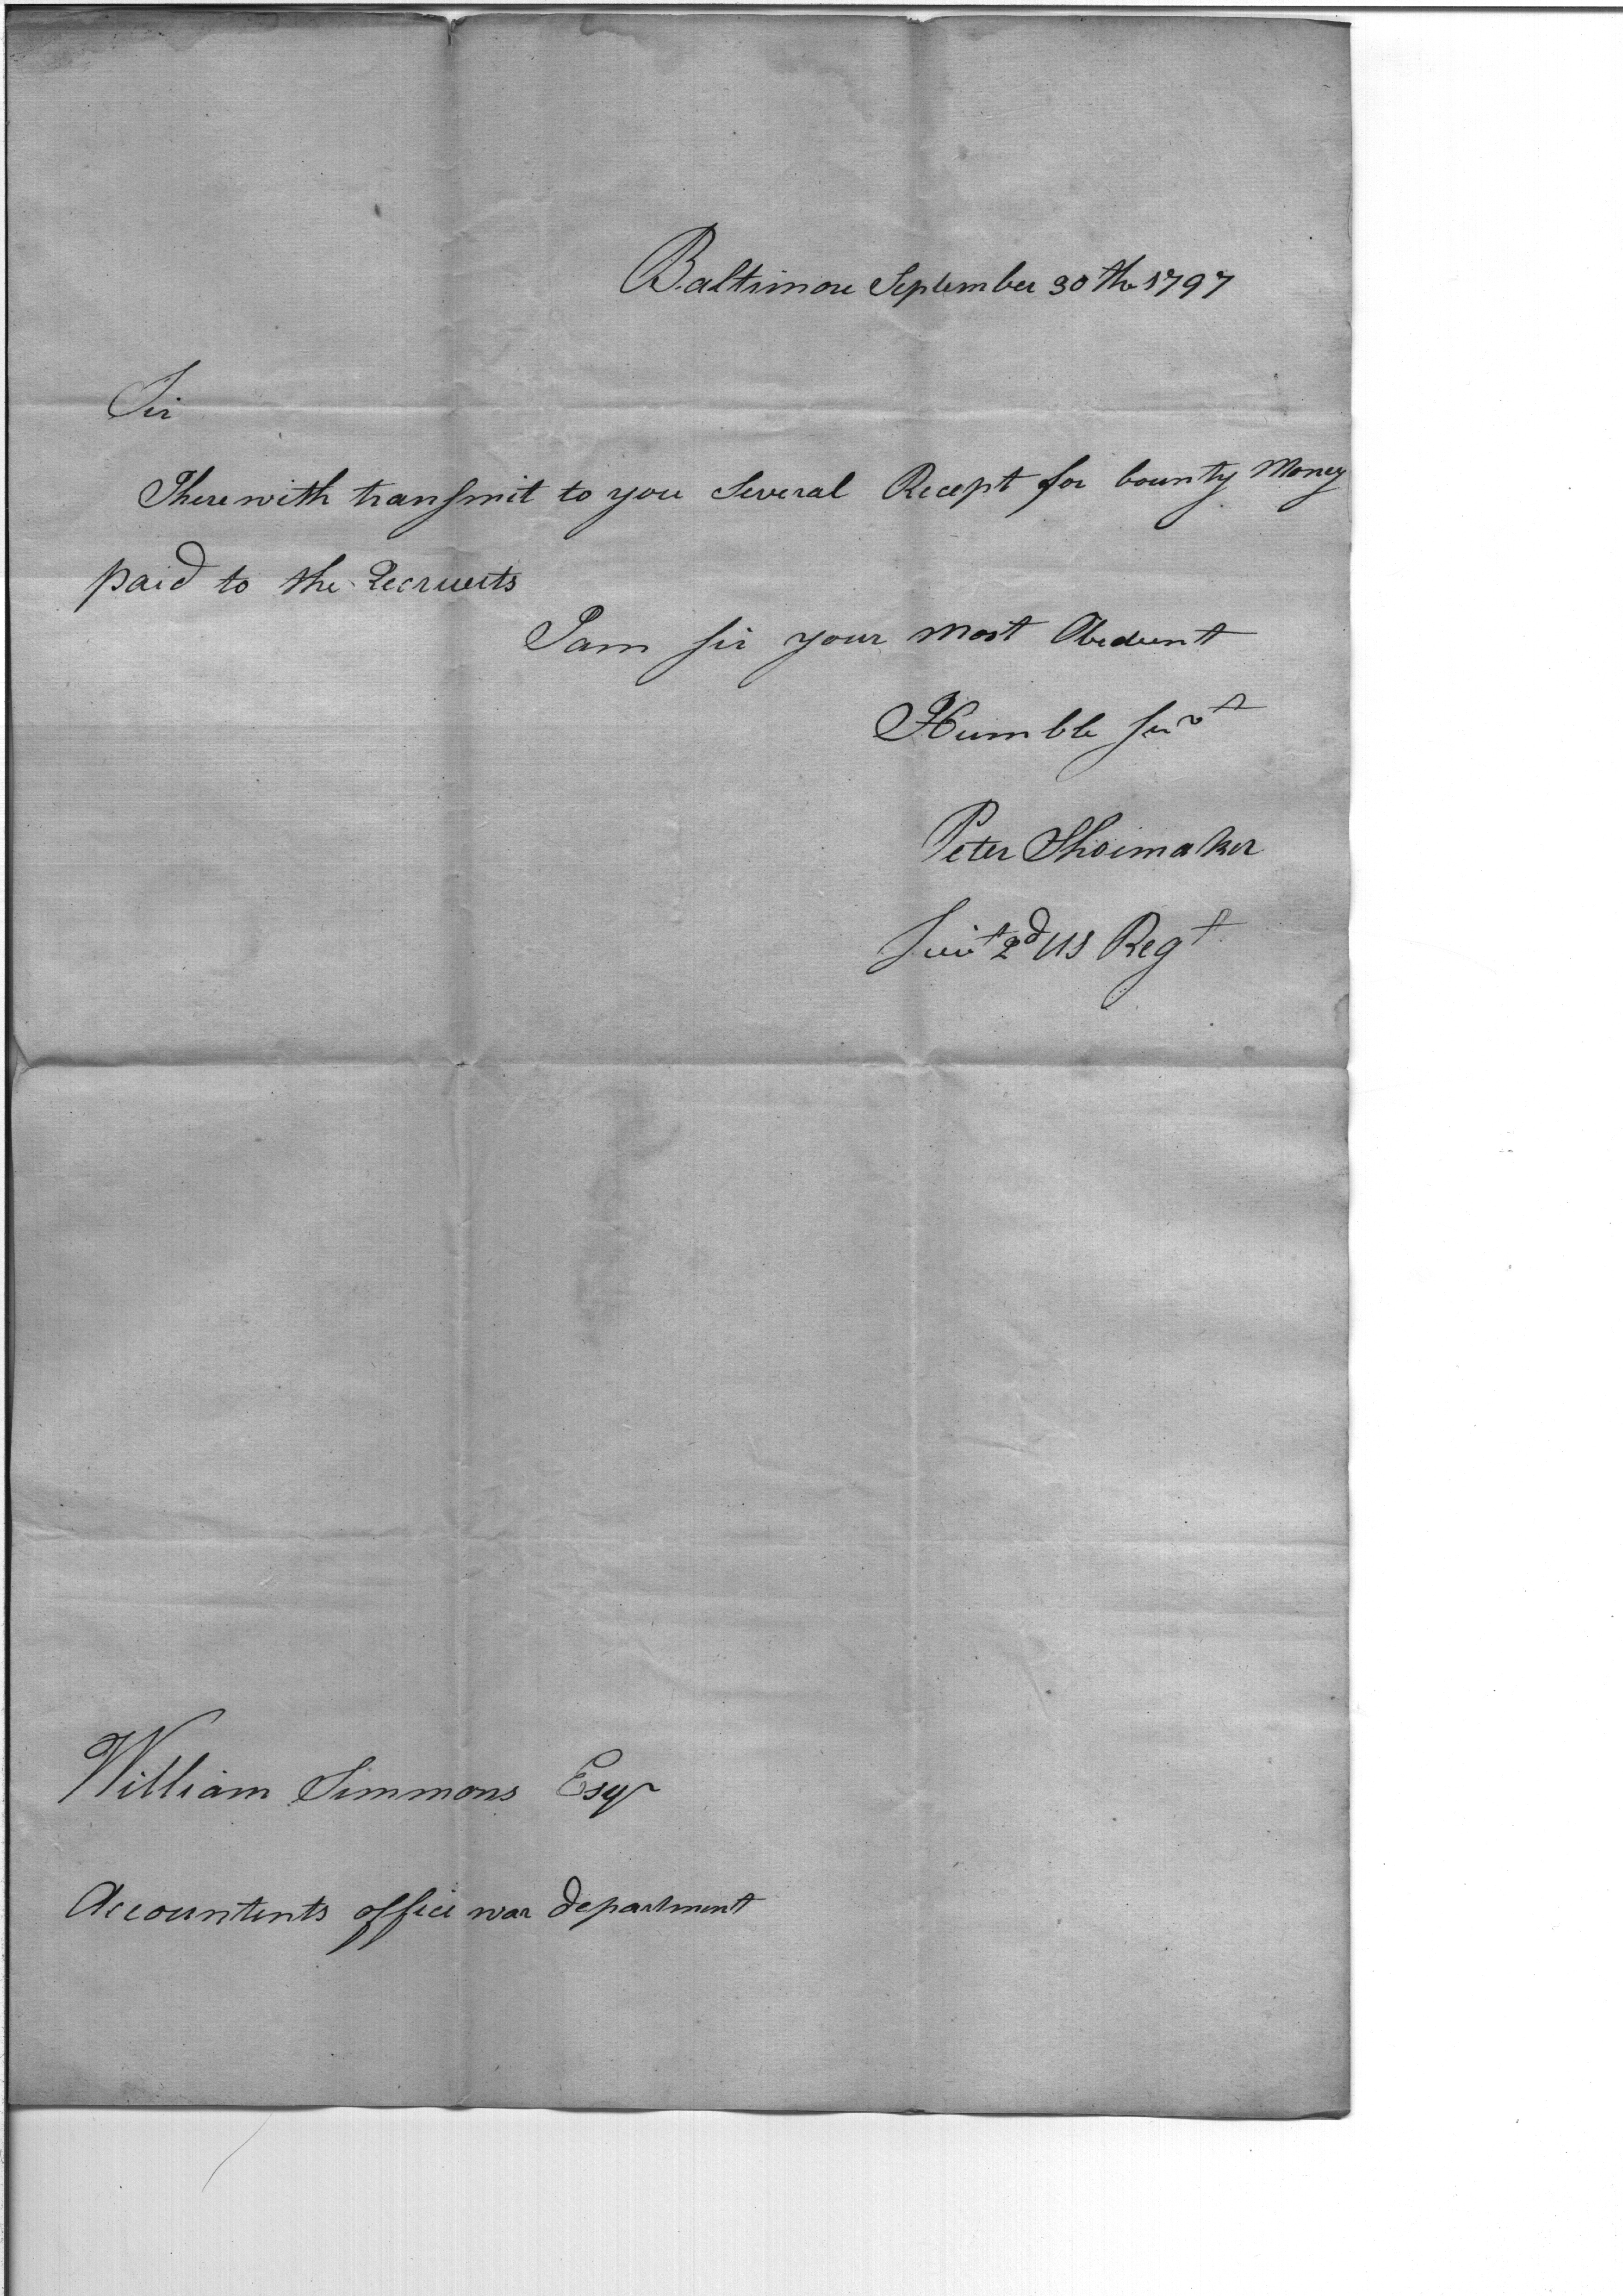 Baltimore September 30th 1797
Sir
I herewith transmit to you Several Recept for bounty Money
paid to the Recruets
I am sir your most Obedient
Humble Servt
Peter Shoemaker
Lieut 2d US Regt
William Simmons Esqr
Accountents office war department